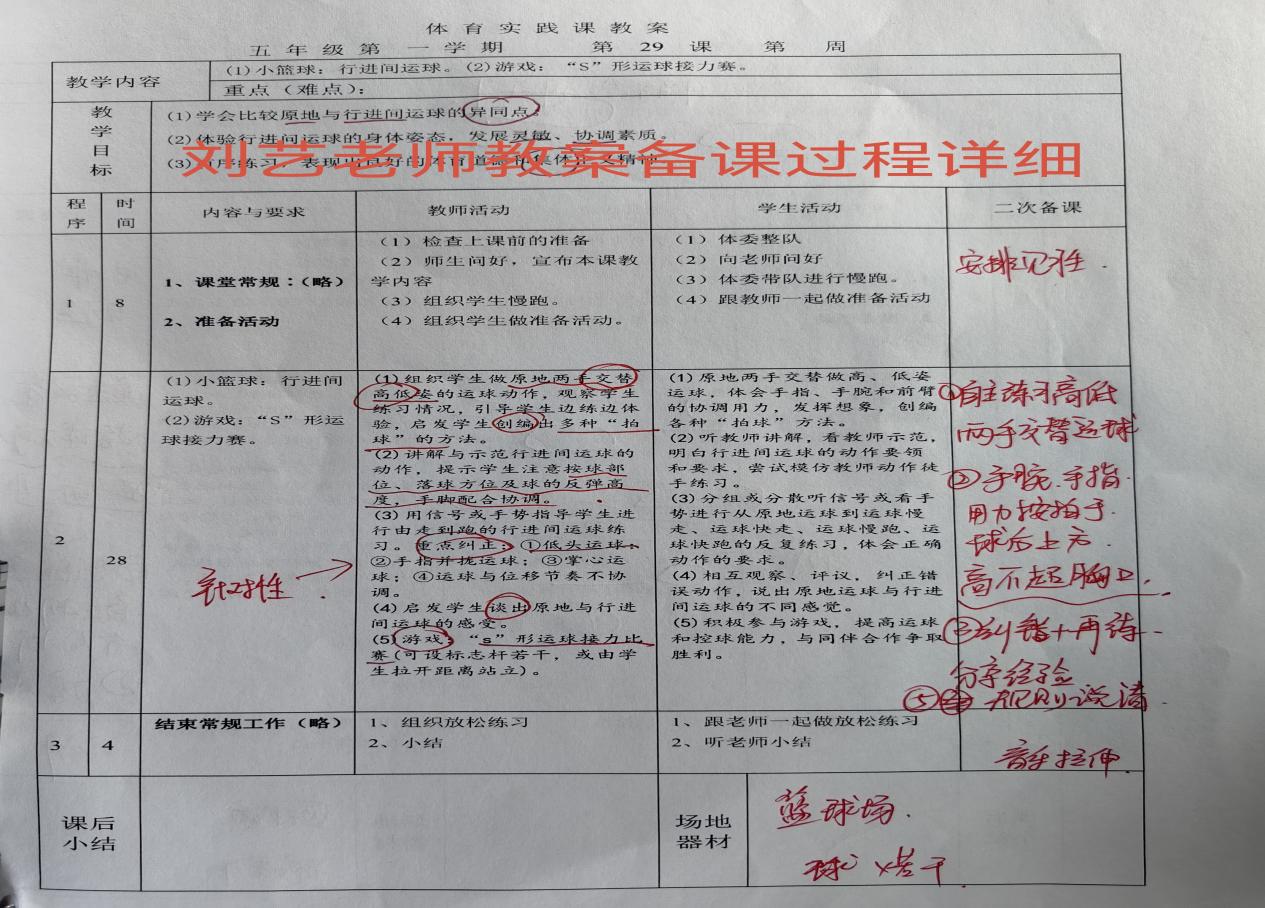 体育实践课教案
五年级第一学期 第 29 课 第 周
教学内容
(1)小篮球：行进间运球。(2)游戏：“S”形运球接力赛。
重点（难点）：
教学目标
(1)学会比较原地与行进间运球的异同点。
(2)体验行进间运球的身体姿态，发展灵敏、协调素质。
刘艺老师教案备课过程详细
程序
时间
内容与要求
教师活动
学生活动
二次备课
1
8
1、课堂常规：（略）
2、准备活动
（1）检查上课前的准备
（2）师生问好，宣布本课教
学内容
（3）组织学生慢跑。
（4）组织学生做准备活动。
（1）体委整队
（2）向老师问好
（3）体委带队进行慢跑。
（4）跟教师一起做准备活动
安排见习生.
2
28
(1)小篮球：行进间
运球。
(2)游戏：“S”形运
球接力赛。
针对性
(1)组织学生做原地两手交替
高低姿的运球动作，观察学生
练习情况，引导学生边练边体
验，启发学生创编出多种“拍
球”的方法。
(2)讲解与示范行进间运球的
动作，提示学生注意按球部
位、落球方位及球的反弹高
度，手脚配合协调。
(3)用信号或手势指导学生进
行由走到跑的行进间运球练
习。重点纠正：①低头运球；
②手指并拢运球；③掌心运
球；④运球与位移节奏不协
调。
(4)启发学生谈出原地与行进
间运球的感受。
(5)游戏：“s”形运球接力比
赛(可设标志杆若干，或由学
生拉开距离站立)。
(1)原地两手交替做高、低姿
运球，体会手指、手腕和前臂
的协调用力，发挥想象，创编
各种“拍球”方法。
(2)听教师讲解，看教师示范，
明白行进间运球的动作要领
和要求，尝试模仿教师动作徒
手练习。
(3)分组或分散听信号或看手
势进行从原地运球到运球慢
走、运球快走、运球慢跑、运
球快跑的反复练习，体会正确
动作的要求。
(4)相互观察、评议，纠正错
误动作，说出原地运球与行进
间运球的不同感觉。
(5)积极参与游戏，提高运球
和控球能力，与同伴合作争取
胜利。
①自主练习高低
两手交替运球
②手腕.手指
用力按拍
球后上方.
高不超胸口.
③纠错+再练
分享经验
⑤ 规则说清
3
4
结束常规工作（略）
1、组织放松练习
2、小结
1、跟老师一起做放松练习
2、听老师小结
音乐拉伸.
课后小结
场地器材
篮球场.
球 若干.